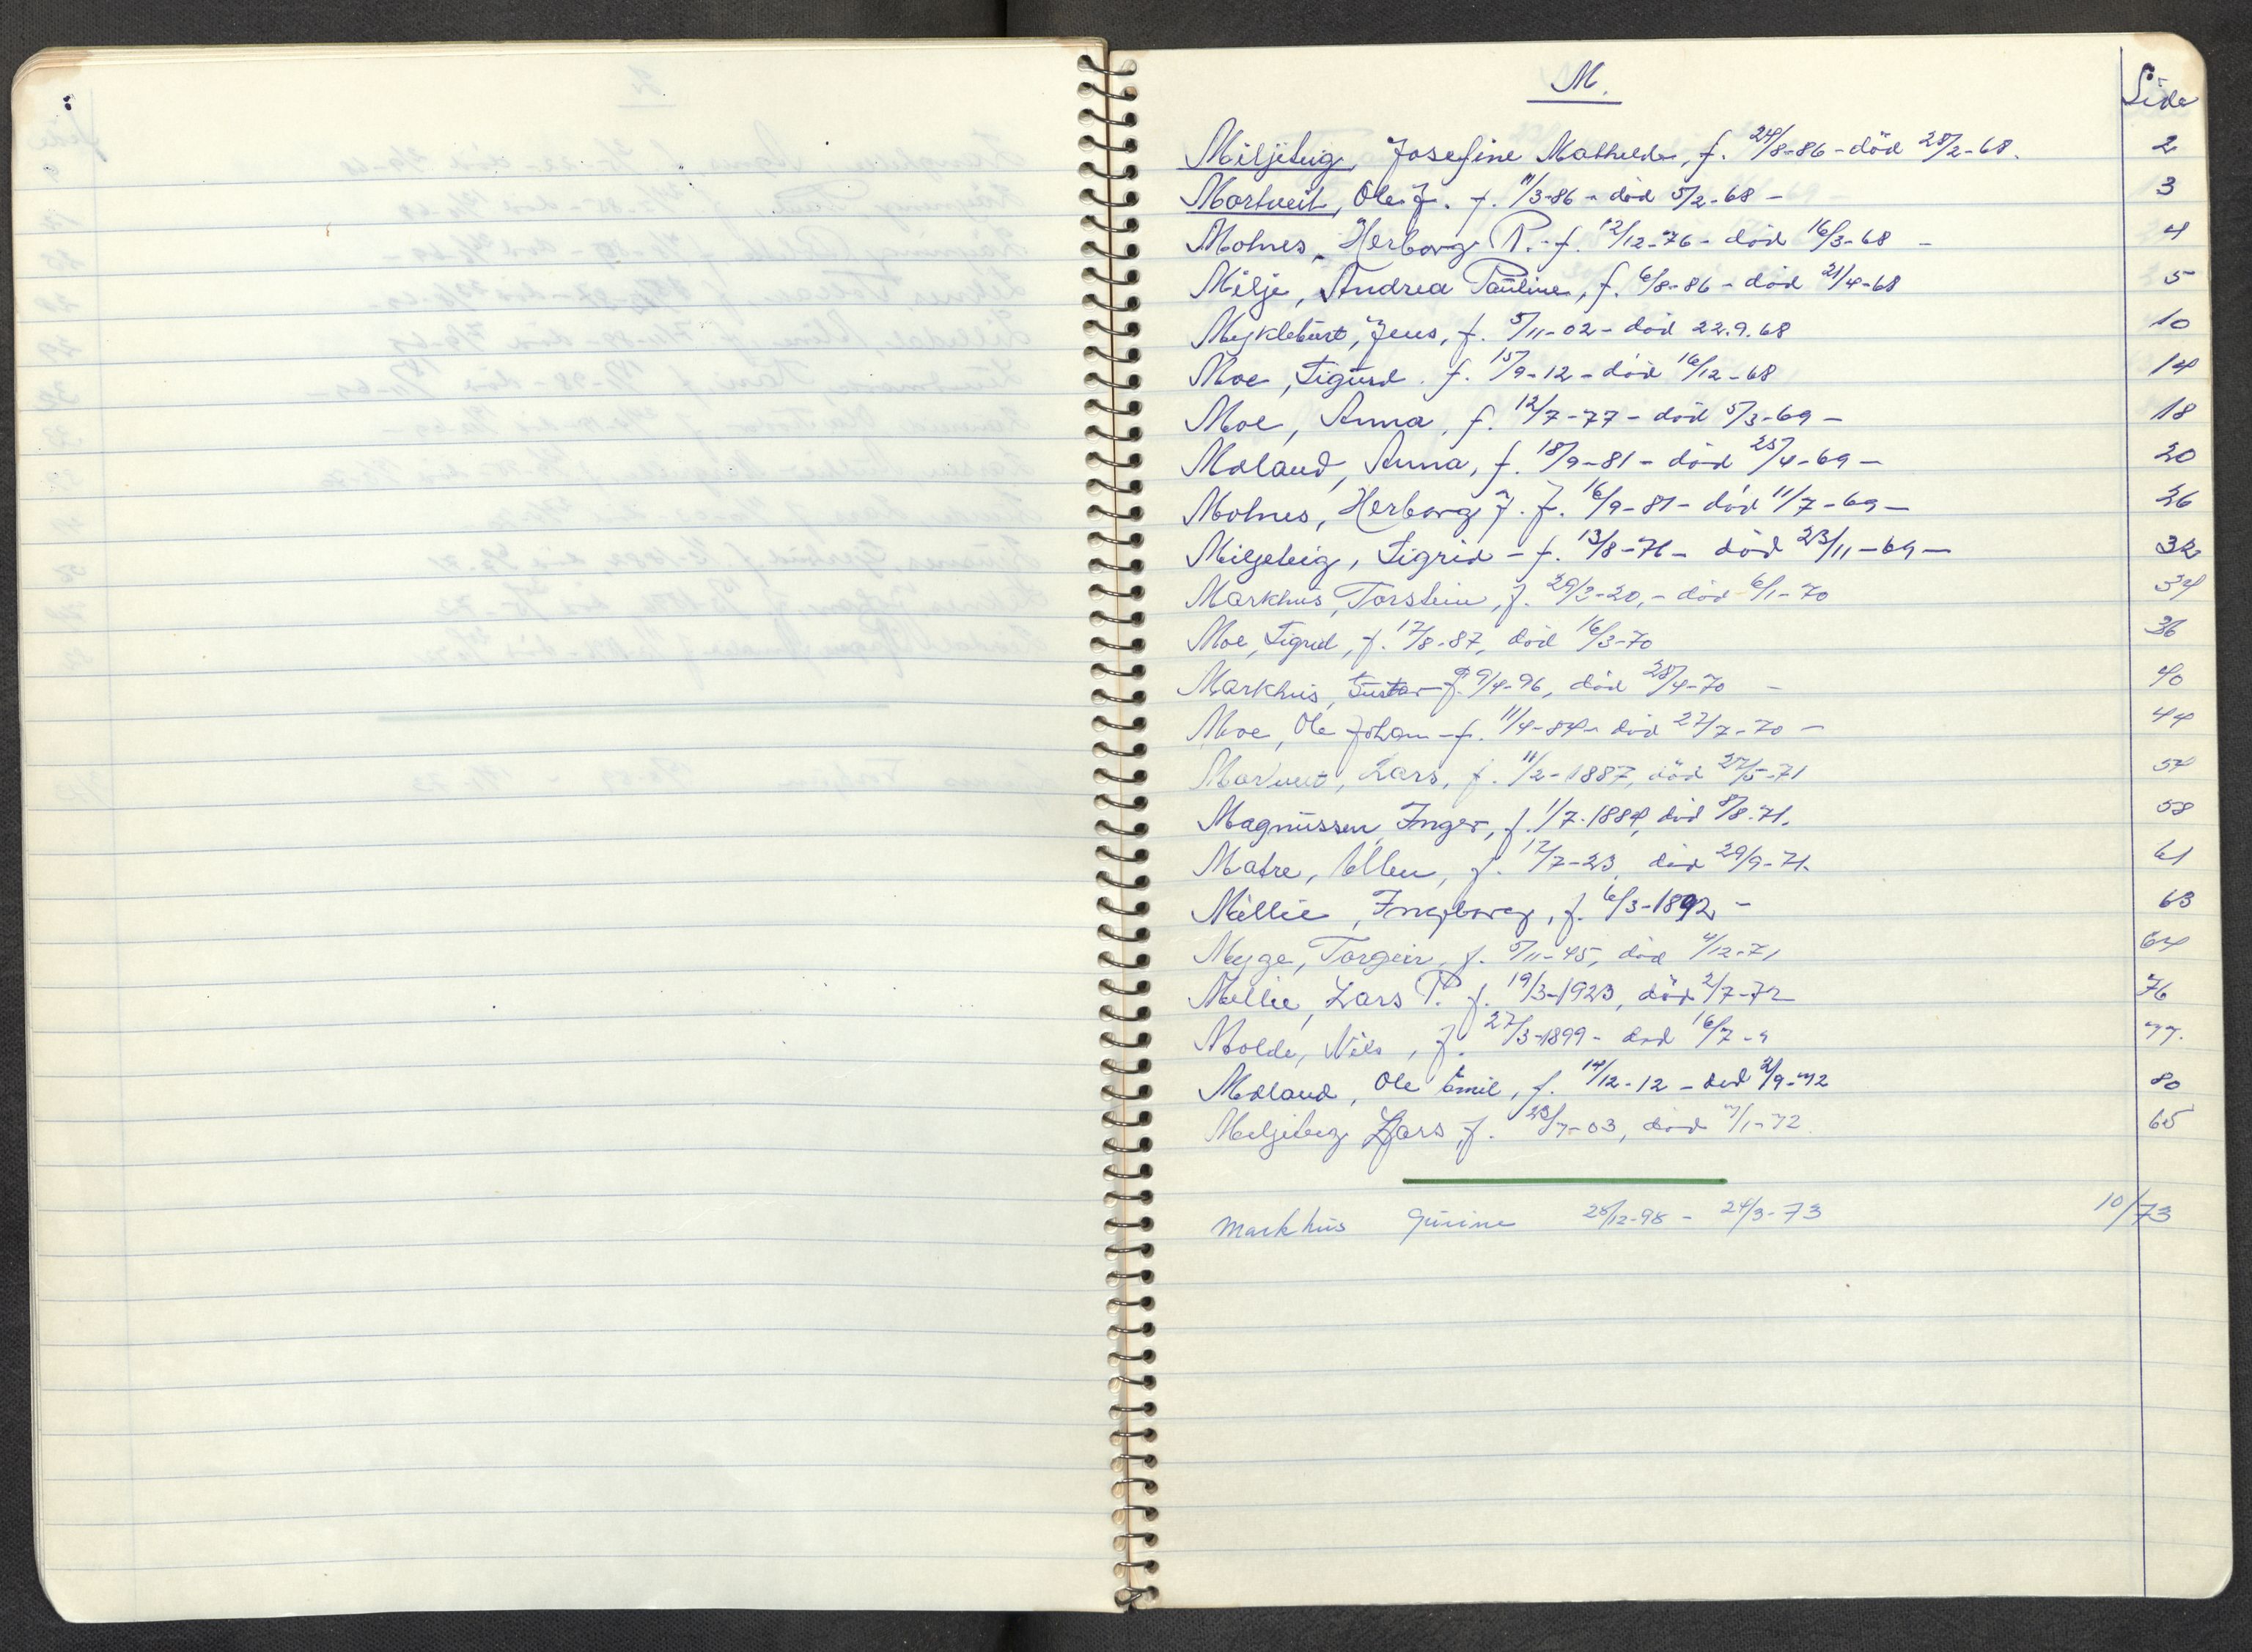 M.
Side
Miljeteig, Josefine Mathilde, f. 24/8-86 - död 28/2-68. 2
Mortveit, Ole J. f. 11/3-86 - död 5/2-68 - 3
Molnes, Herborg P. - f. 12/12-76 - död 16/3-68 - 4
Milje, Andrea Pauline, f. 6/8-86 - död 21/4-68 5
Myklebust, Jens, f. 5/11-02 - död 22.9.68 10
Moe, Sigurd. f. 15/9-12 - död 16/12-68 14
Moe, Anna, f. 12/7-77 - död 5/3-69 - 18
Moland, Anna, f. 18/9-81 - död 25/4-69 - 20
Molnes, Herborg J. f. 16/9-81 - död 11/7-69 - 26
Miljeteig, Sigrid - f. 13/8-71 - död 23/11-69 - 32
Markhus, Torstein, f. 29/2-20, - död 6/1-70 34
Moe, Sigrid, f. 17/8-87, död 16/3-70 36
Markhus, Gustav f. 9/4-96, död 28/4-70 - 40
Moe, Ole Johan - f. 11/4-84 - död 27/7-70 - 44
Mortveit, Lars, f. 11/2-1887, död 27/5-71 54
Magnussen, Inger, f. 1/7-1884, död 8/8.71. 58
Matre, Ellen, f. 17/7-23, död 29/9-71. 61
Millie, Ingeborg, f. 6/3-1892 - 63
Myge, Torgeir, f. 5/11-45, död 4/12-71 64
Mellie, Lars P. f. 19/3-1923, död 2/7-72 76
Molde, Nils, f. 27/3-1899 - död 16/7 - " 77.
Moland, Ole Emil, f. 14/12-12 - död 2/9-72 80
Miljeteig Lars, f. 23/7-03, död 7/1-72. 65
Markhus Gurine 28/12-98 - 24/3-73 10/73